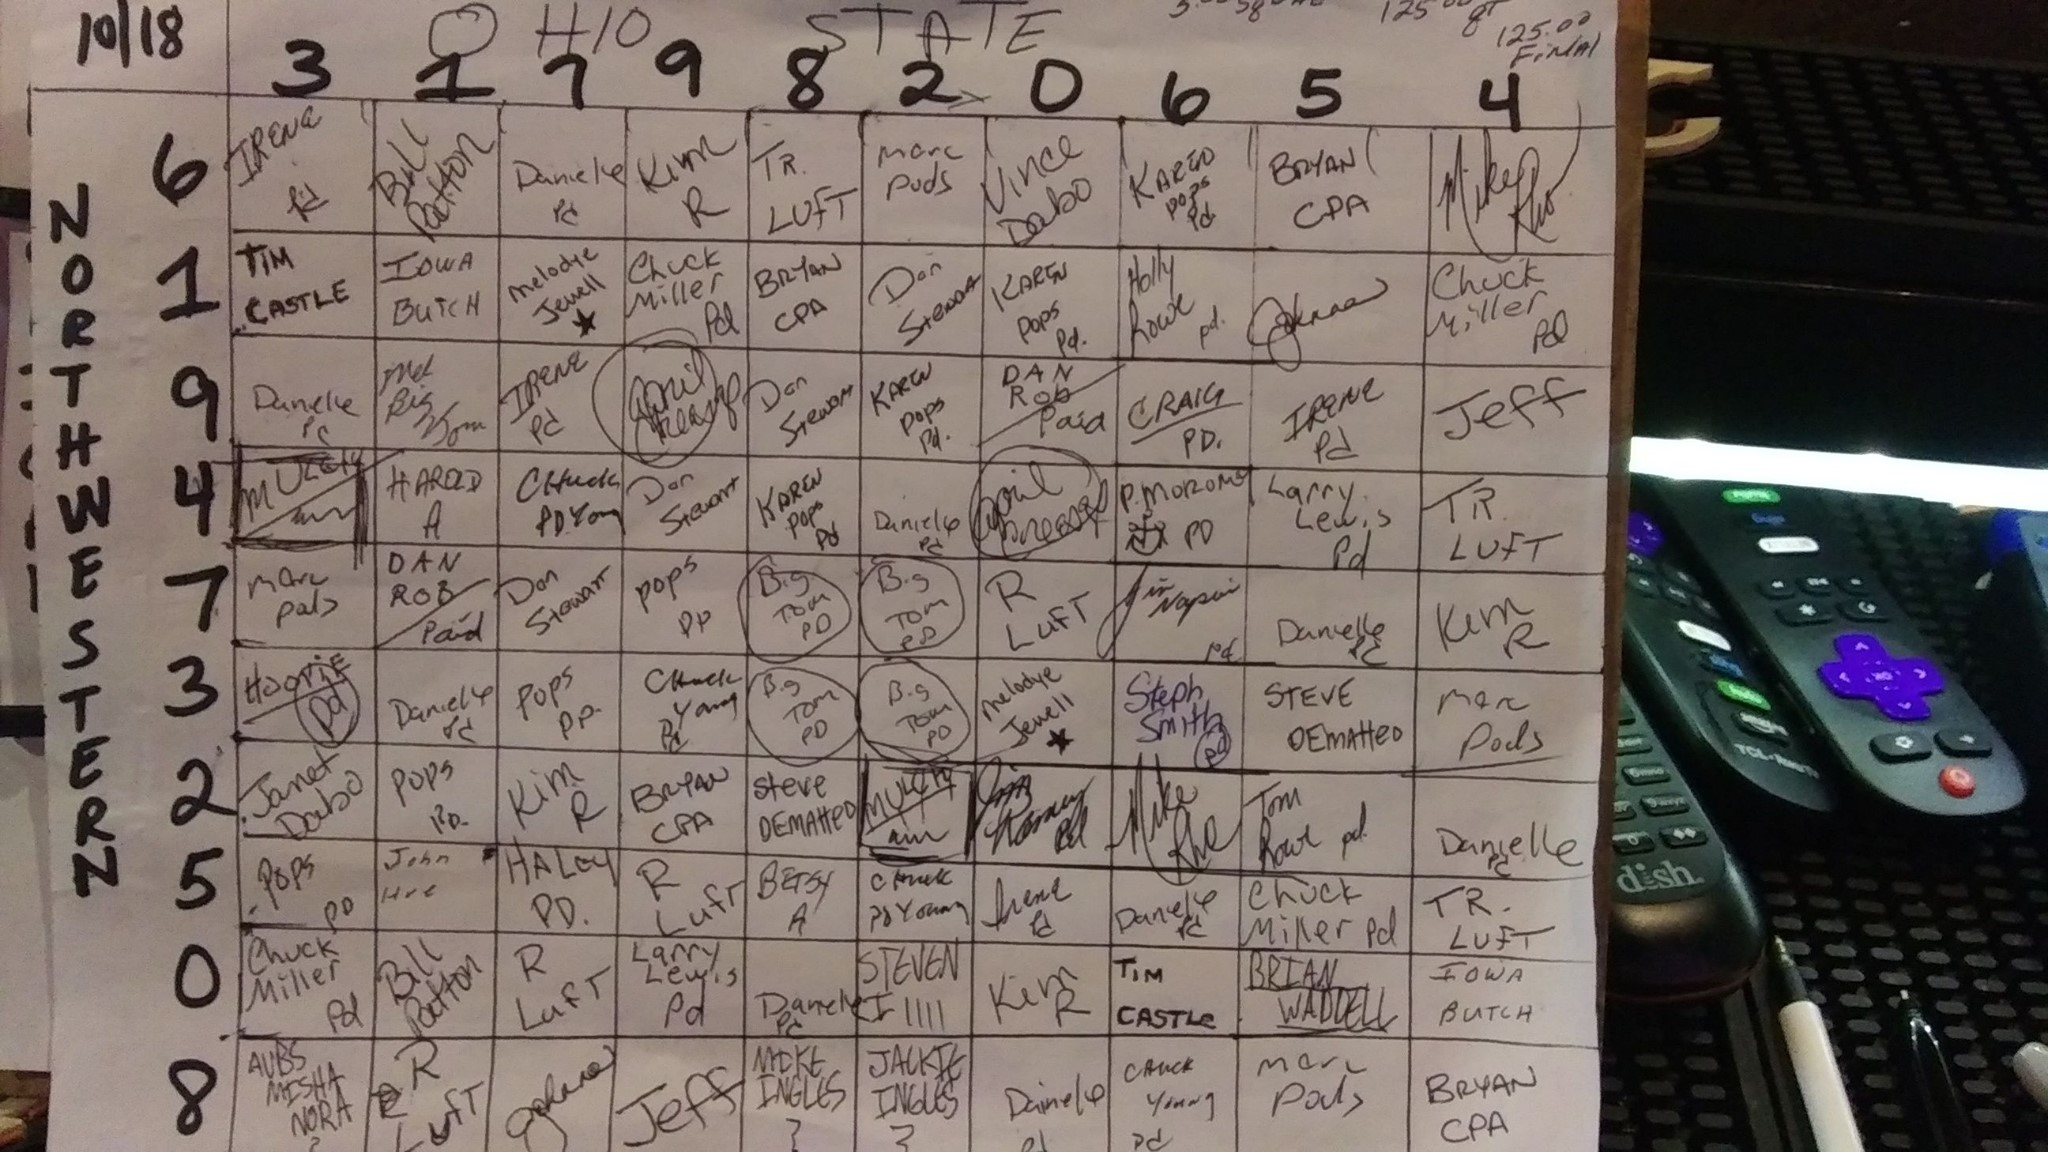 10/18 OHIO STATE
125.00
Final
3 1 7 9 8 2 0 6 5 4
NORTHWESTERN
6 IRENE Pd Bill Patton Danielle Pd Kim R TR. LUFT Marc Pods Vince Dabo KAREN Pops Pd. BRYAN CPA Mike Rho
1 TIM CASTLE IOWA BUTCH Melodye Jewell ★ Chuck Miller Pd BRYAN CPA Don Stewart KAREN Pops Pd. Holly Rowe pd. Chuck Miller Pd
9 Danielle Pd Big Tom IRENE Pd April Don Stewart KAREN Pops Pd. DAN ROB Paid CRAIG PD. IRENE Pd Jeff
4 HAROLD A Chuck PD Young Don Stewart KAREN Pops Pd Danielle Pd April PD Larry Lewis Pd TR. LUFT
7 Marc Pods DAN ROB Paid Don Stewart POPS PD Big Tom PD Big Tom PD R LUFT Pd. Danielle Pd Kim R
3 HOOPIE Pd Danielle Pd POPS PD. Chuck Young Pd Big Tom PD Big Tom PD Melodye Jewell ★ Steph Smith Pd STEVE DEMATTEO Marc Pods
2 Janet Dabo POPS PD. Kim R BRYAN CPA Steve DEMATTEO Pd Mike Rho Tom Rowe pd. Danielle Pd
5 POPS PD John HALEY PD. R LUFT BETSY A Chuck PD Young Irene Pd Danielle Pd Chuck Miller Pd TR. LUFT
0 Chuck Miller Pd Bill Patton R LUFT Larry Lewis Pd Danielle Pd STEVEN I IIII Kim R TIM CASTLE BRIAN WADDELL IOWA BUTCH
8 AUBS MISHA NORA R LUFT Jeff MIKE INGLES JACKIE INGLES Danielle Pd Chuck Young Pd Marc Pods BRYAN CPA
dish
hulu
TCL·Roku TV